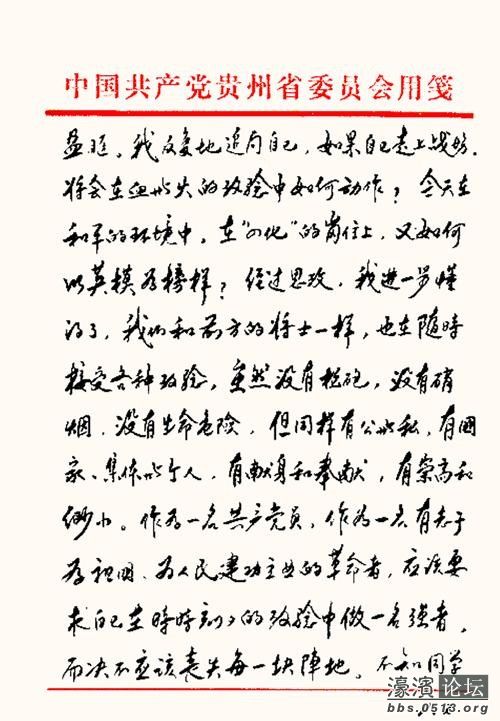 中国共产党贵州省委员会用笺
盈眶。我反复地追问自己，如果自己走上战场，
将会在血与火的攷验中如何动作？今天在
和平的环境中，在“四化”的岗位上，又如何
以英模为榜样？经过思攷，我进一步懂
得了，我们和前方的将士一样，也在随時
接受各种攷验，虽然没有枪砲，没有硝
烟，没有生命危险，但同样有公与私，有國
家、集体与个人，有献身和奉献，有崇高和
渺小。作为一名共产党员，作为一名有志于
为祖国、为人民建功立业的革命者，应该要
求自己在時時刻刻的攷验中做一名强者，
而决不应该丧失每一块陣地。不知同学
濠滨论坛
bbs.0513.org